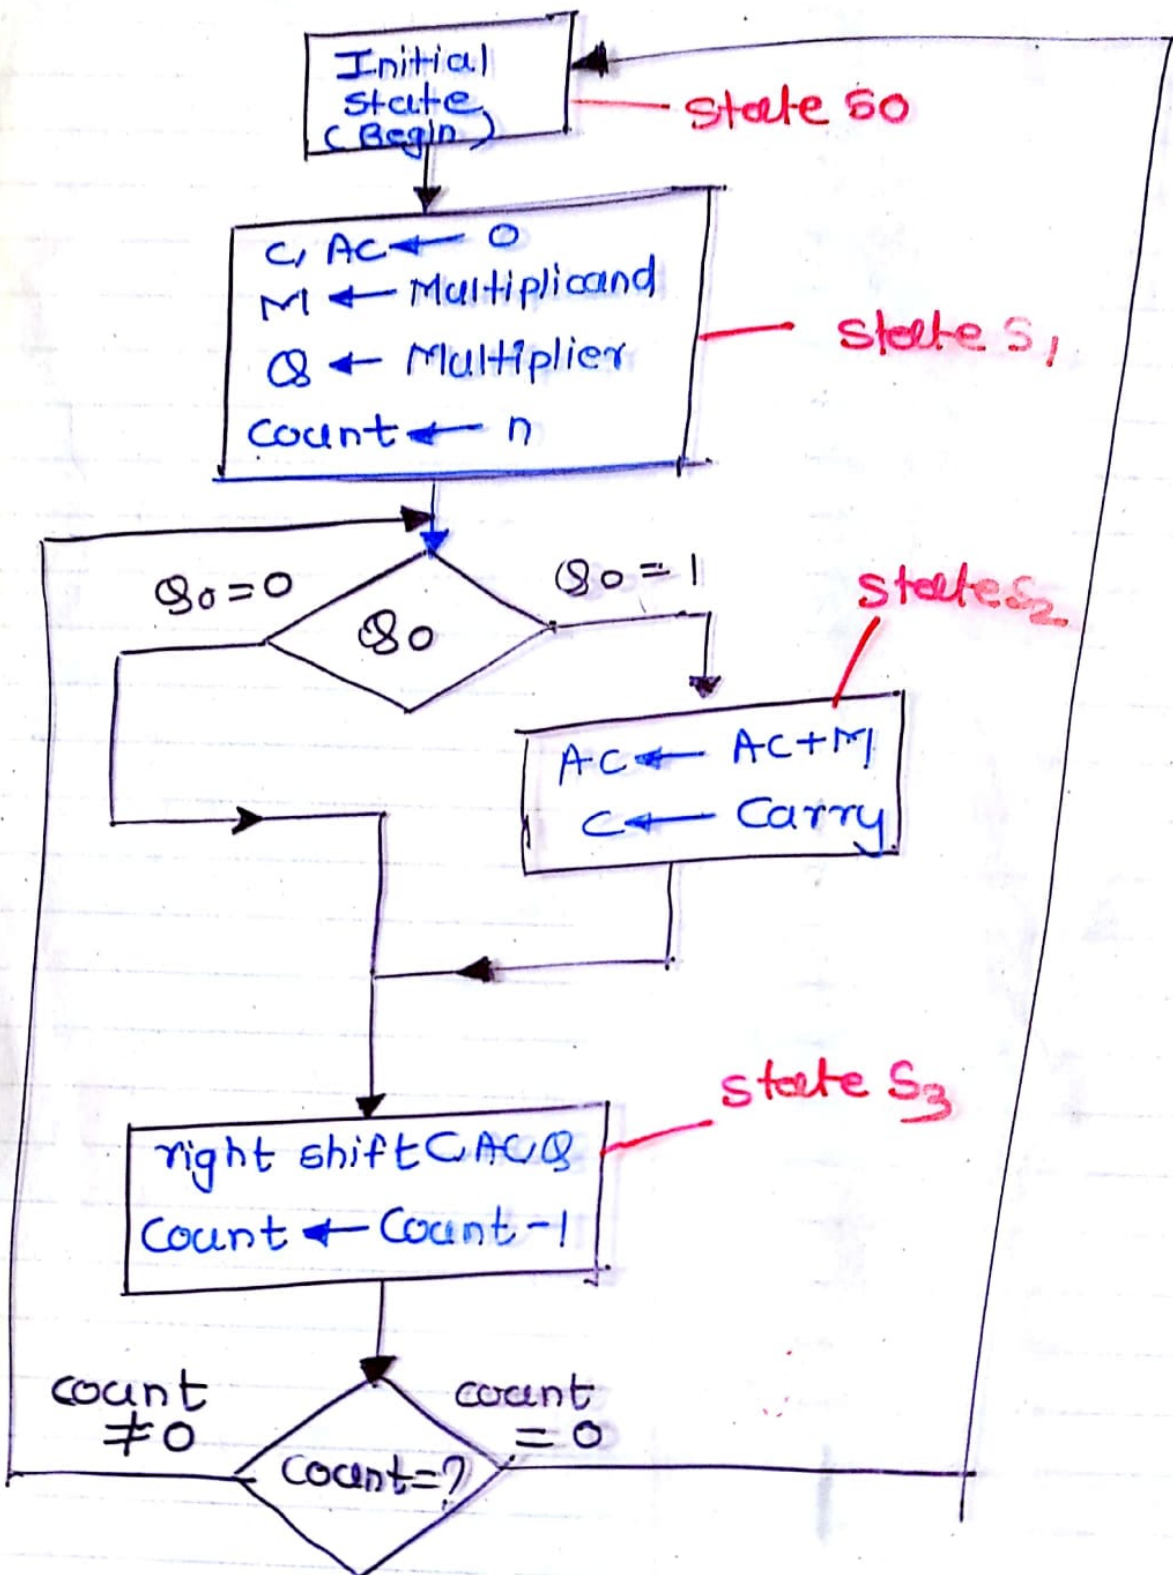 Initial
state
(Begin)
State S0
C, AC ← 0
M ← Multiplicand
Q ← Multiplier
Count ← n
State S1
Q0=0
Q0=1
Q0
State S2
AC ← AC+M
C ← Carry
State S3
right shift C AC Q
Count ← Count-1
count
≠0
count
=0
Count=?